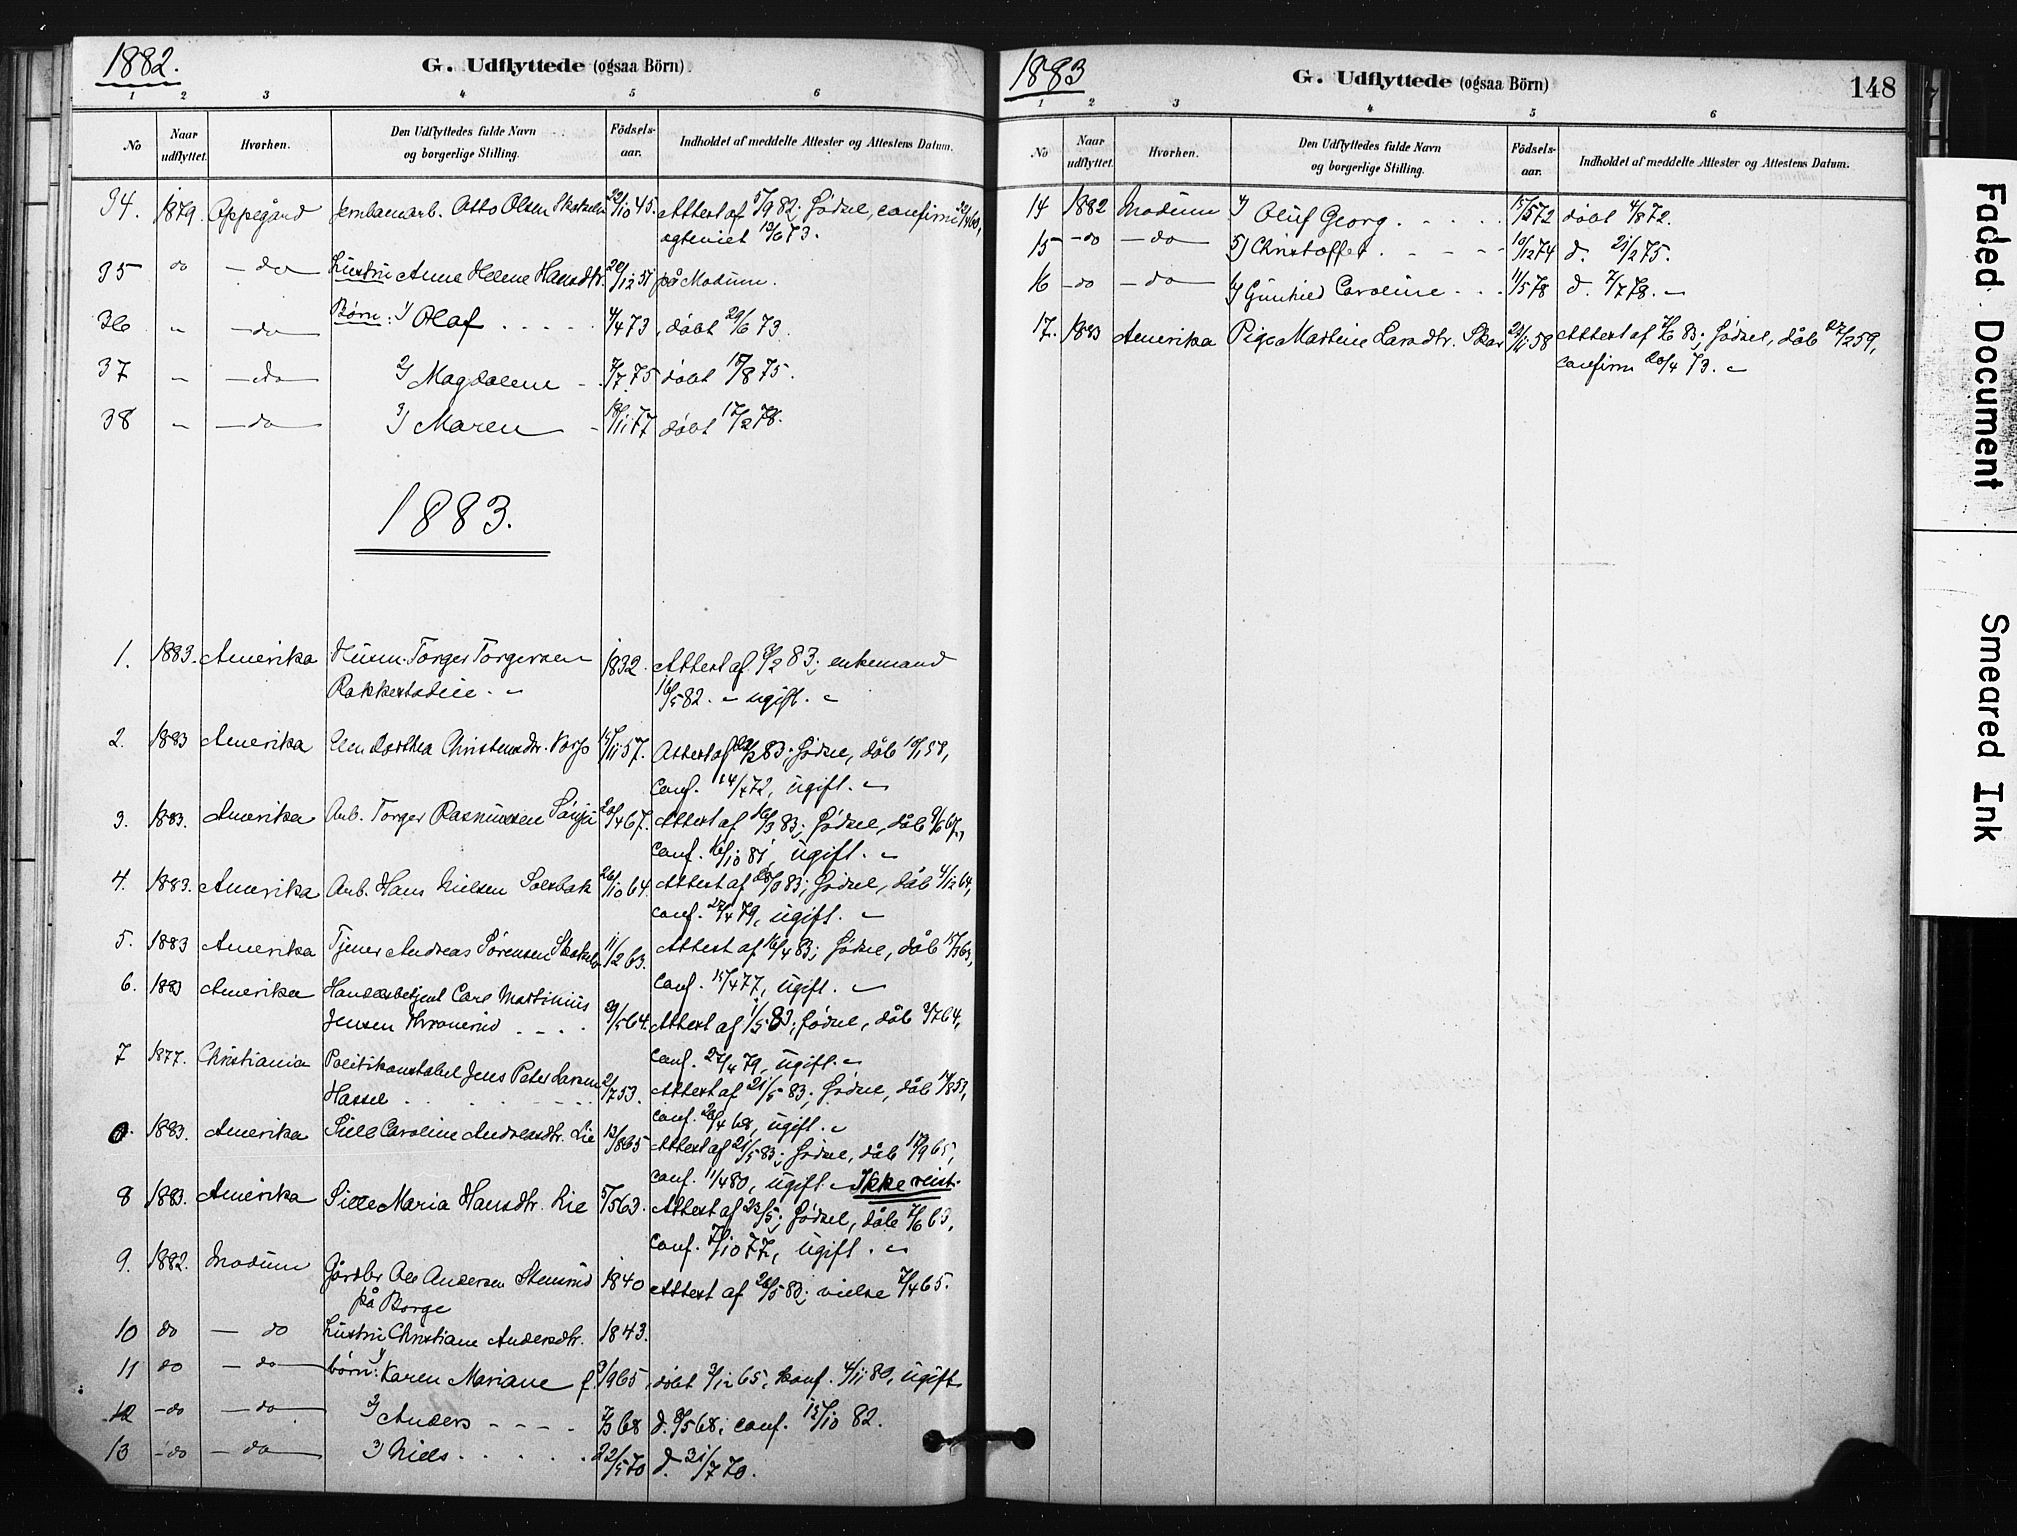 1882.
G. Udflyttede (ogsaa Börn).
1 2 3 4 5 6
No
Naar udflyttet.
Hvorhen.
Den Udflyttedes fulde Navn og borgerlige Stilling.
Födsels-aar.
Indholdet af meddelte Attester og Attestens Datum.
34. 1879. Oppegård Jernbanearb. Otto Olsen 22/10 45. Attest af 5/9 82; Födsel, confirm
ægteviet 13/6 73.
35 do - do Hustru Anne Helene Hansdtr. 20/12 51 på Modum.
36 " - do Børn: 1) Olaf 4/4 73 döbt 29/6 73.
37 " - do 2) Magdalene 7/7 75 döbt 15/8 75.
38 " - do 3) Maren 18/11 77 döbt 17/2 78.
1883.
1. 1883. Amerika Husm. Torger Torgersen 1832. Attest af 8/2 83; enkemand
16/5 82. - ugift. -
2. 1883 Amerika Dorthea Christensdr. 57. Attest af 83; Födsel, dåb
Conf. 14/4 72, ugift. -
3. 1883. Amerika Arb. Torger Rasmussen 20/4 67. Attest af 16/3 83; Födsel, dåb 9/6 67,
conf. 16/10 81, ugift. -
4. 1883. Amerika Arb. Hans Nielsen Solebak 26/10 64. Attest af 83; Födsel, dåb 4/12 64,
conf. 27/4 79, ugift. -
5. 1883 Amerika Tjener Andreas Sörensen 11/2 63. Attest af 16/4 83; Födsel, dåb
6. 1883 Amerika Handelsbetjent Carl Martinius conf. 15/4 77, ugift. -
Jensen 29/5 64. Attest af 1/5 83; Födsel, dåb 3/7 64,
7 1877. Christiania Politikonstabel Jens Peter Larsen 2/7 53. conf. 27/4 79, ugift. -
Hassel Attest af 21/5 83; Födsel, dåb 14/8 53,
conf. 26/4 68, ugift. -
1883. Amerika Sille Caroline Andreasdtr. Lie 13/8 65 Attest af 21/5 83; Födsel, dåb 17/9 65,
conf. 11/4 80, ugift - Ikke reist.
8 1883. Amerika Sille Maria Hansdtr. Lie 5/5 63. Attest af 22/5; Födsel, dåb 7/6 63,
conf. 7/10 77, ugift. -
9. 1882. Modum Gårdbr Ole Andersen Stensrud 1840 Attest af 26/5 83; vielse 7/4 65.
på Borge
10 do - do Hustru Christiane Andersdtr. 1843.
11 do - do börn: 1) Karen Mariane f. 3/9 65, döbt 3/12 65, Konf. 4/11 80, ugift
12 - do - do 2) Anders 7/3 68 d. 8/5 68; conf. 15/10 82.
13 - do - do 3) Niels 22/5 70 d. 31/7 70.
1883
G. Udflyttede (ogsaa Börn)
148
1 2 3 4 5 6
No
Naar udflyttet.
Hvorhen.
Den Udflyttedes fulde Navn og borgerlige Stilling.
Födsels-aar.
Indholdet af meddelte Attester og Attestens Datum.
14 1882 Modum 4) Oluf Georg 15/5 72 döbt 4/8 72.
15 - do - do 5) Christoffer 10/12 74 d. 21/2 75.
16 - do - do 6) Gunhild Caroline 11/5 78 d. 7/7 78. -
17. 1883 Amerika Pige Martine Larsdtr. Skar 58 Attest af 83; Födsel, dåb 27/2 59,
confirm 20/4 73. -
Faded Document
Smeared Ink